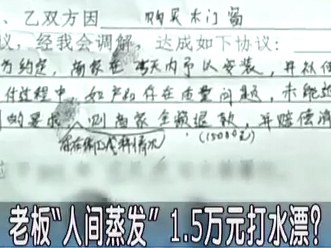 、乙双方因 购买木门窗
议，经我会调解，达成如下协议：
为约定，商家在 天内予以安装，并从
件过程中，如产品存在质量问题，未能达
的要求，则商家全额退款，并赔偿消
(15000元)
老板“人间蒸发” 1.5万元打水漂?